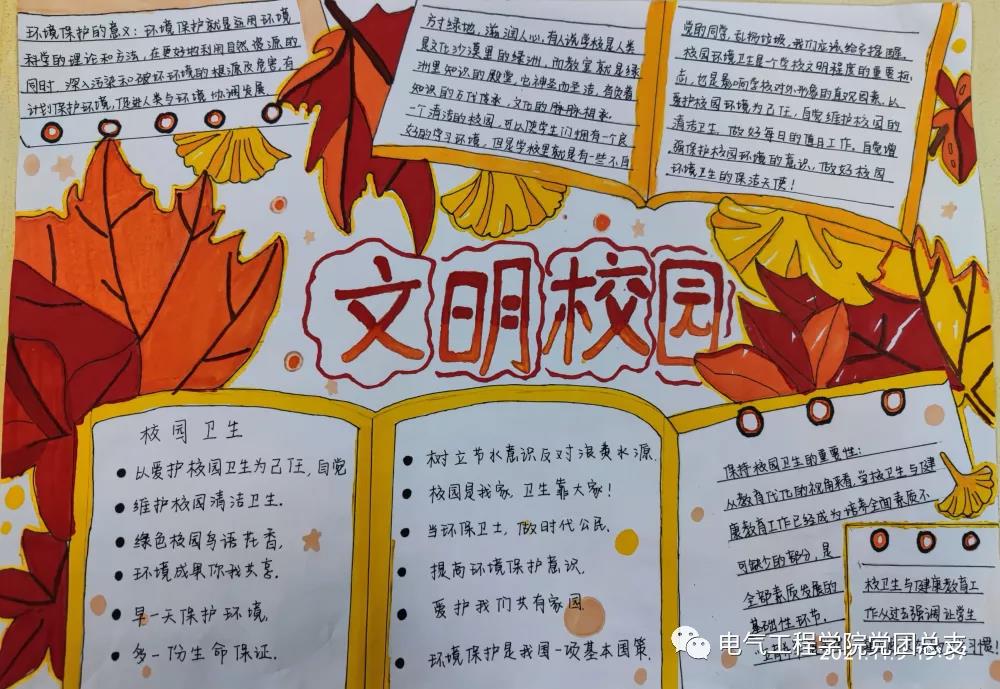 环境保护的意义：环境保护就是运用环境
科学的理论和方法，在更好地利用自然资源的
同时，深入污染和破坏环境的根源及危害，有
计划保护环境，促进人类与环境协调发展
方寸绿地，滋润人心，有人说学校是人类
是文化沙漠里的绿洲，而教室就是绿
洲里知识的殿堂，它神圣而圣洁，有效着
知识的万代传承，文化的脉脉相承，
一个清洁的校园，可以使学生们拥有一个良
好的学习环境，但是学校里就是有一些不自
觉的同学，乱扔垃圾，我们应该给予提醒，
校园环境卫生是一个学校文明程度的重要标
志，也是影响学校对外形象的直观因素，以
爱护校园环境为己任，自觉维护校园的
清洁卫生，做好每日的值日工作，自觉增
强保护校园环境的意识，做好校园
环境卫生的保洁天使！
文明校园
校园卫生
以爱护校园卫生为己任，自觉
维护校园清洁卫生．
绿色校园鸟语花香，
环境成果你我共享．
早一天保护环境，
多一份生命保证．
树立节水意识反对浪费水源．
校园是我家，卫生靠大家！
当环保卫士，做时代公民．
提高环境保护意识，
爱护我们共有家园．
环境保护是我国一项基本国策．
保持校园卫生的重要性：
从教育代化的视角来看，学校卫生与健
康教育工作已经成为培养全面素质不
可缺少的部分，是
全部素质发展的
基础性环节，
校卫生与健康教育工
作从过去强调让学生
习惯！
电气工程学院党团总支